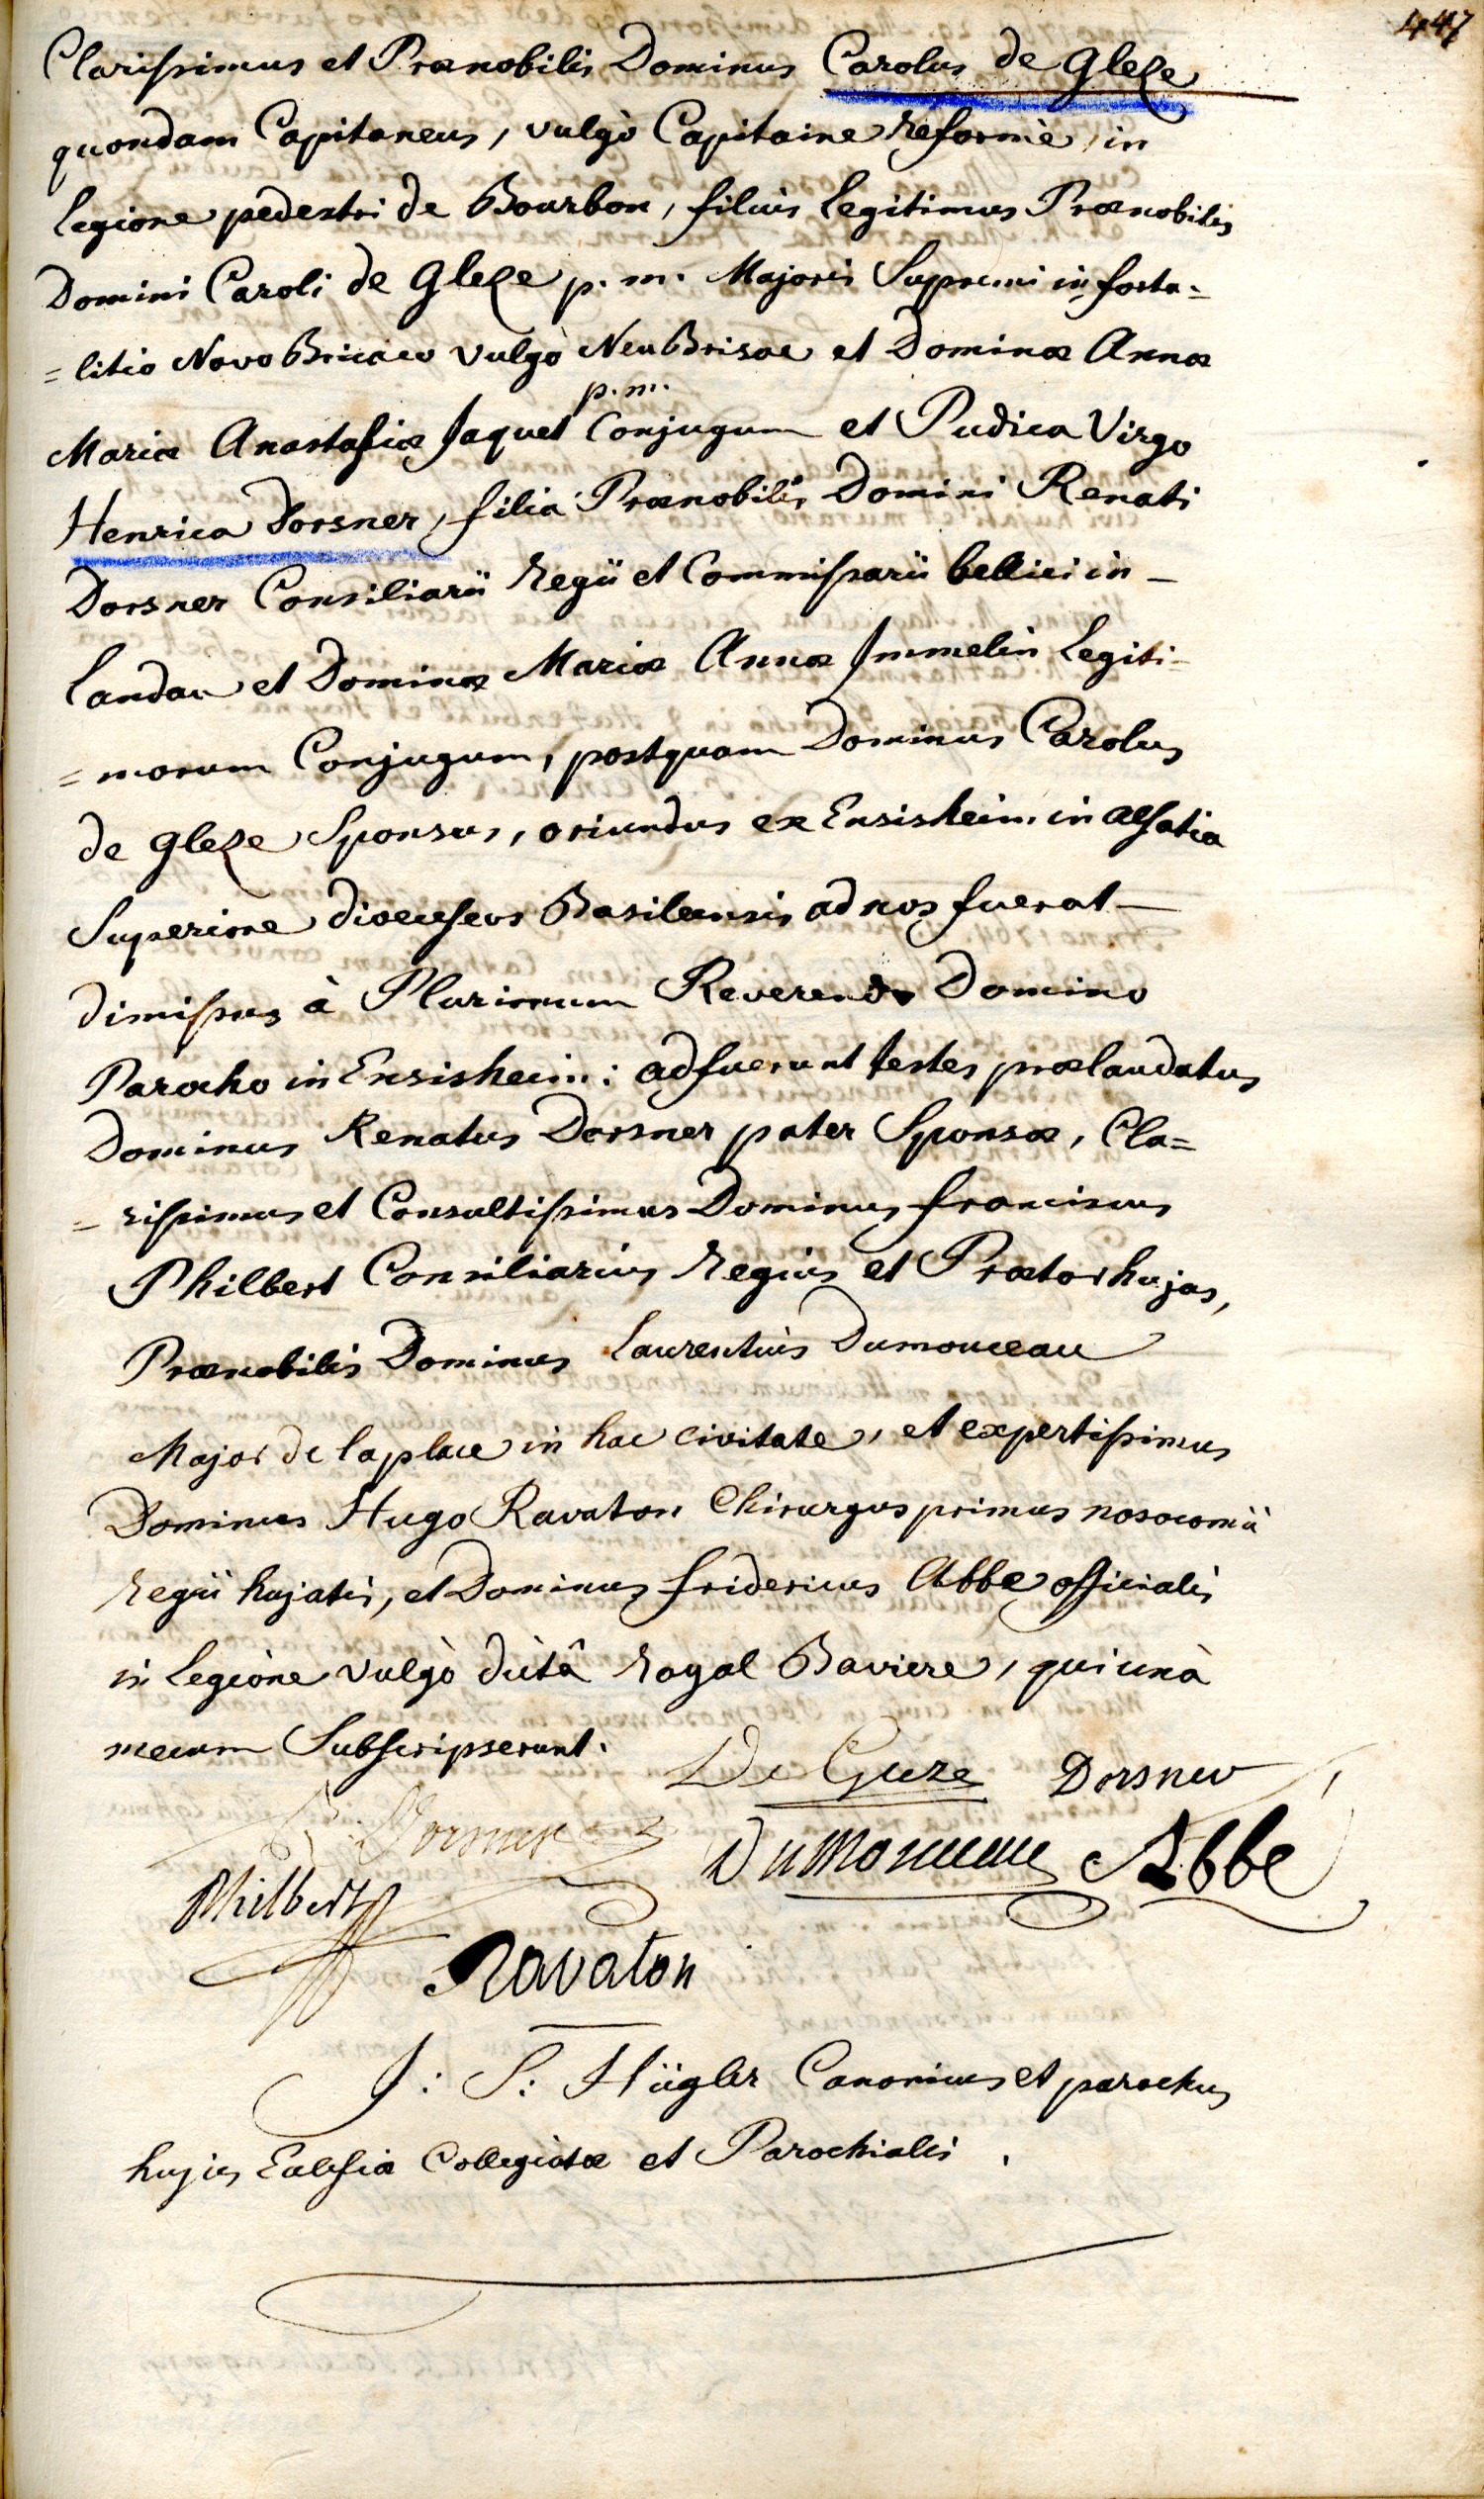 447
Clarissimus et Prænobilis Dominus Carolus de Gleze
quondam Capitaneus, vulgò Capitaine reformé, in
Legione pedestri de Bourbon, filius Legitimus Prænobilis
Domini Caroli de Gleze p. m. Majoris Supremi in forta=
=litio Novo Brisaco vulgò NeuBrisac et Dominæ Annæ
p. m.
Mariæ Anastasiæ Jaquet Conjugum et Pudica Virgo
Henrica Dorsner, filia Prænobilis Domini Renati
Dorsner Consiliarii Regii et Commissarii bellici in
Landau et Dominæ Mariæ Annæ Immelin Legiti-
=morum Conjugum, postquam Dominus Carolus
de Gleze Sponsus, oriundus ex Ensisheim in Alsatia
Superiore dioeceseos Basileensis ad nos fuerat
dimissus à Plurimum Reverendo Domino
Parocho in Ensisheim: adfuerunt testes prælaudatus
Dominus Renatus Dorsner pater Sponsæ, Cla=
=rissimus et Consultissimus Dominus franciscus
Philbert Consiliarius Regius et Prætor hujas,
Prænobilis Dominus Laurentius Dumouceau
Major de la place in hac civitate, et expertissimus
Dominus Hugo Ravaton Chirurgus primus nosocomii
Regii hujatis, et Dominus fridericus Abbe officialis
in Legione vulgò dictâ Royal Baviere, qui unà
mecum Subscripserunt.
De Gleze Dorsner
Dorsner
DuMouceau Abbé
Philbert
Ravaton
J: S: Hügler Canonicus et parochus
hujus Ecclesiæ Collegiatæ et Parochialis.